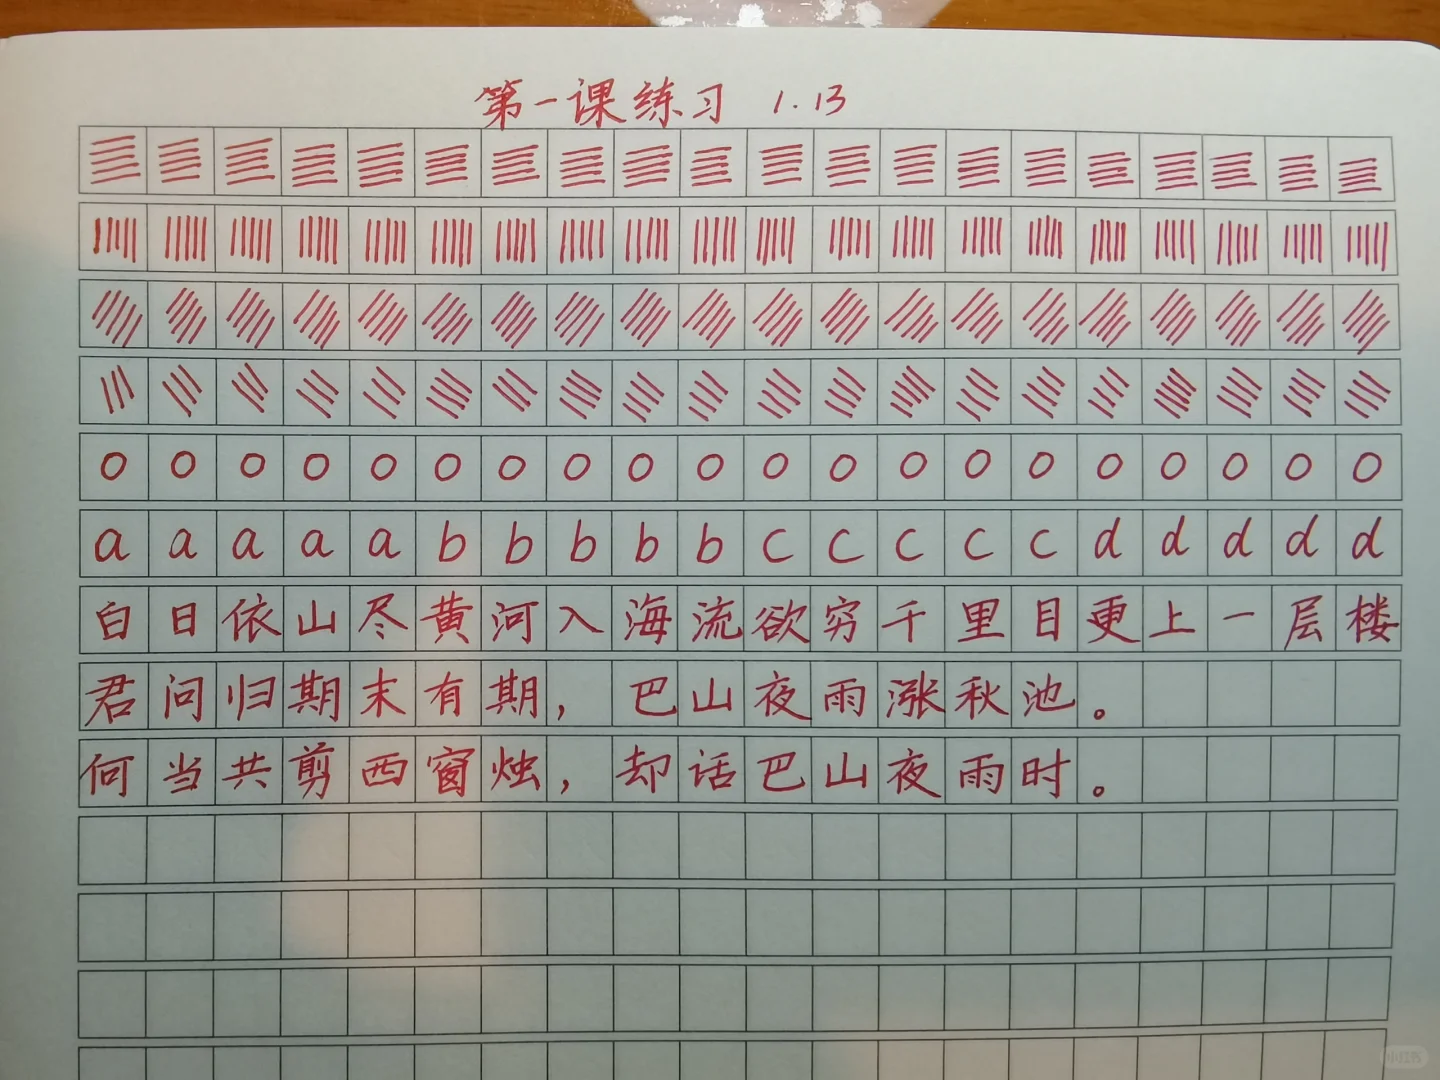 第一课练习 1.13
o o o o o o o o o o o o o o o o o o o o
a a a a a b b b b b c c c c c d d d d d
白日依山尽黄河入海流欲穷千里目更上一层楼
君问归期末有期，巴山夜雨涨秋池。
何当共剪西窗烛，却话巴山夜雨时。
小红书